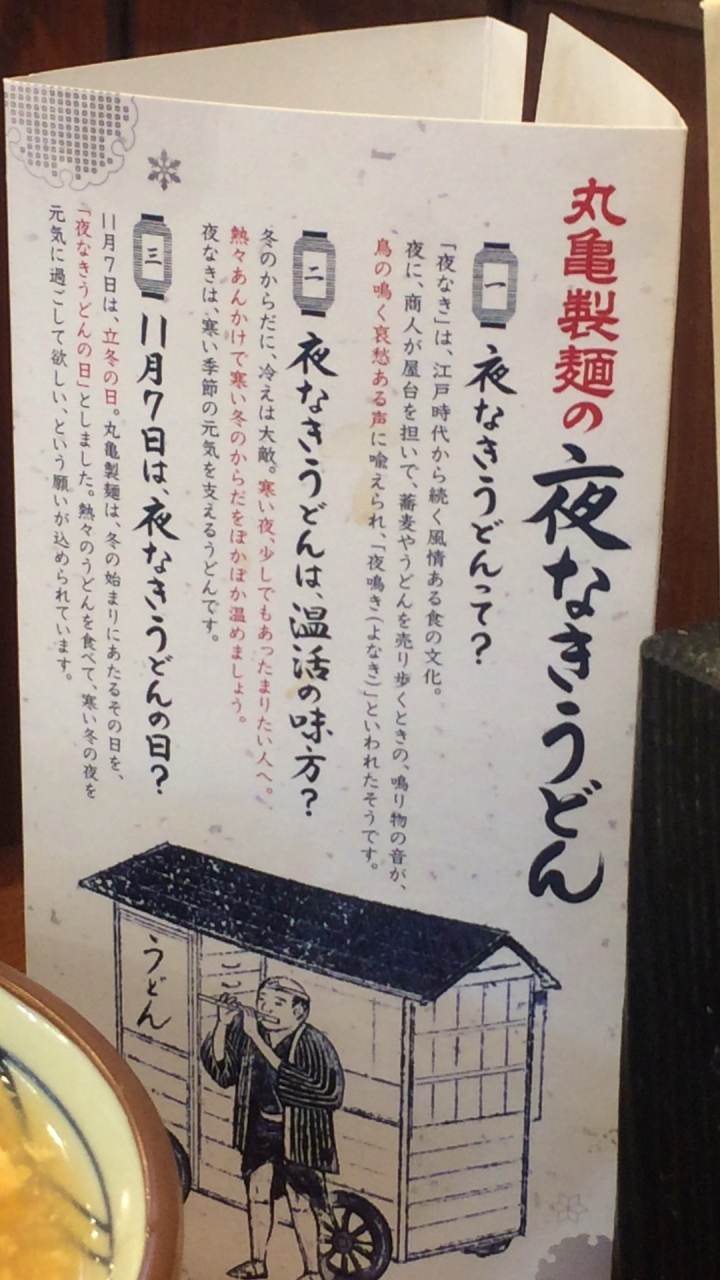 丸亀製麺の夜なきうどん
一
夜なきうどんって?
「夜なき」は、江戸時代から続く風情ある食の文化。
夜に、商人が屋台を担いで、蕎麦やうどんを売り歩くときの、鳴り物の音が、
鳥の鳴く哀愁ある声に喩えられ、「夜鳴き(よなき)」といわれたそうです。
二
夜なきうどんは、温活の味方?
冬のからだに、冷えは大敵。寒い夜、少しでもあったまりたい人へ。
熱々あんかけで寒い冬のからだをぽかぽか温めましょう。
夜なきは、寒い季節の元気を支えるうどんです。
三
11月7日は、夜なきうどんの日?
11月7日は、立冬の日。丸亀製麺は、冬の始まりにあたるその日を、
「夜なきうどんの日」としました。熱々のうどんを食べて、寒い冬の夜を
元気に過ごして欲しい、という願いが込められています。
うどん